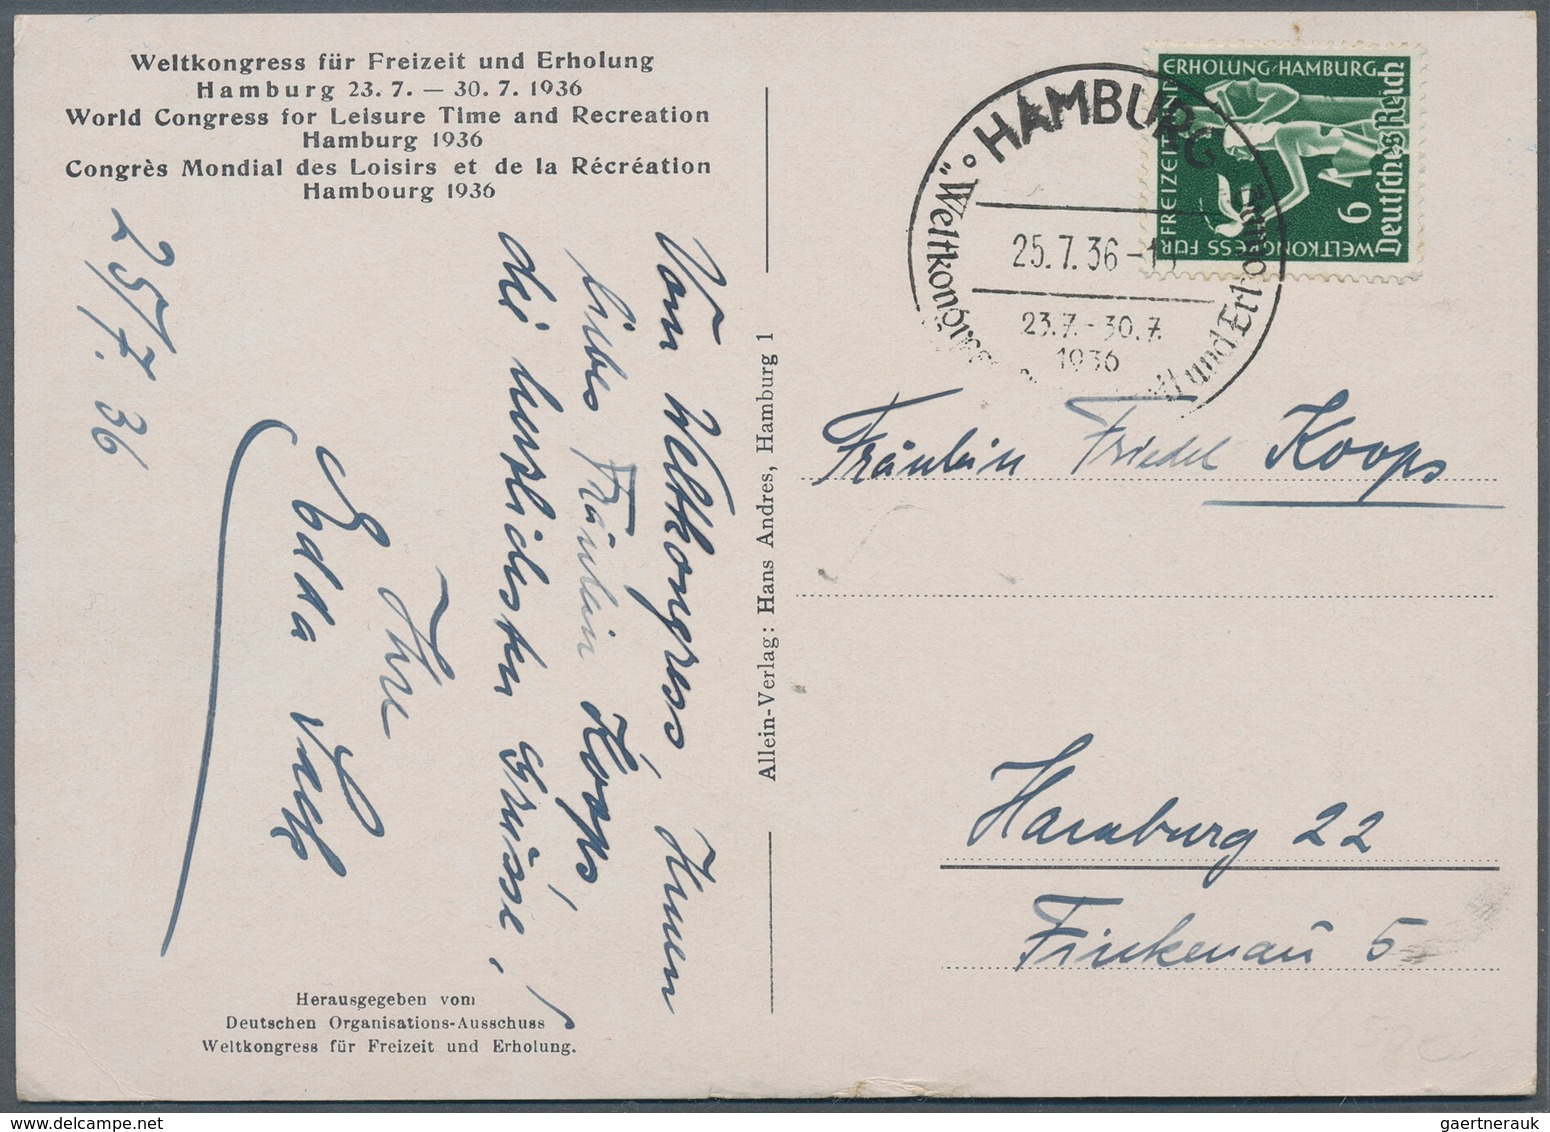 Weltkongress für Freizeit und Erholung
Hamburg 23. 7. — 30. 7. 1936
World Congress for Leisure Time and Recreation
Hamburg 1936
Congrès Mondial des Loisirs et de la Récréation
Hambourg 1936
25/7. 36
Vom Weltkongress Ihnen
liebes Fräulein Koops,
die herzlichsten Grüsse,
Ihre
Edda
Herausgegeben vom
Deutschen Organisations-Ausschuss
Weltkongress für Freizeit und Erholung.
Allein-Verlag: Hans Andres, Hamburg 1
HAMBURG
25.7.36-1
23.7.-30.7.
1936
„Weltkongress
und Erholung
WELTKONGRESS FÜR FREIZEIT UND
ERHOLUNG/HAMBURG
6
Deutsches Reich
Fräulein Friedel Koops
Hamburg 22
Finkenau 5
gaertnerauk